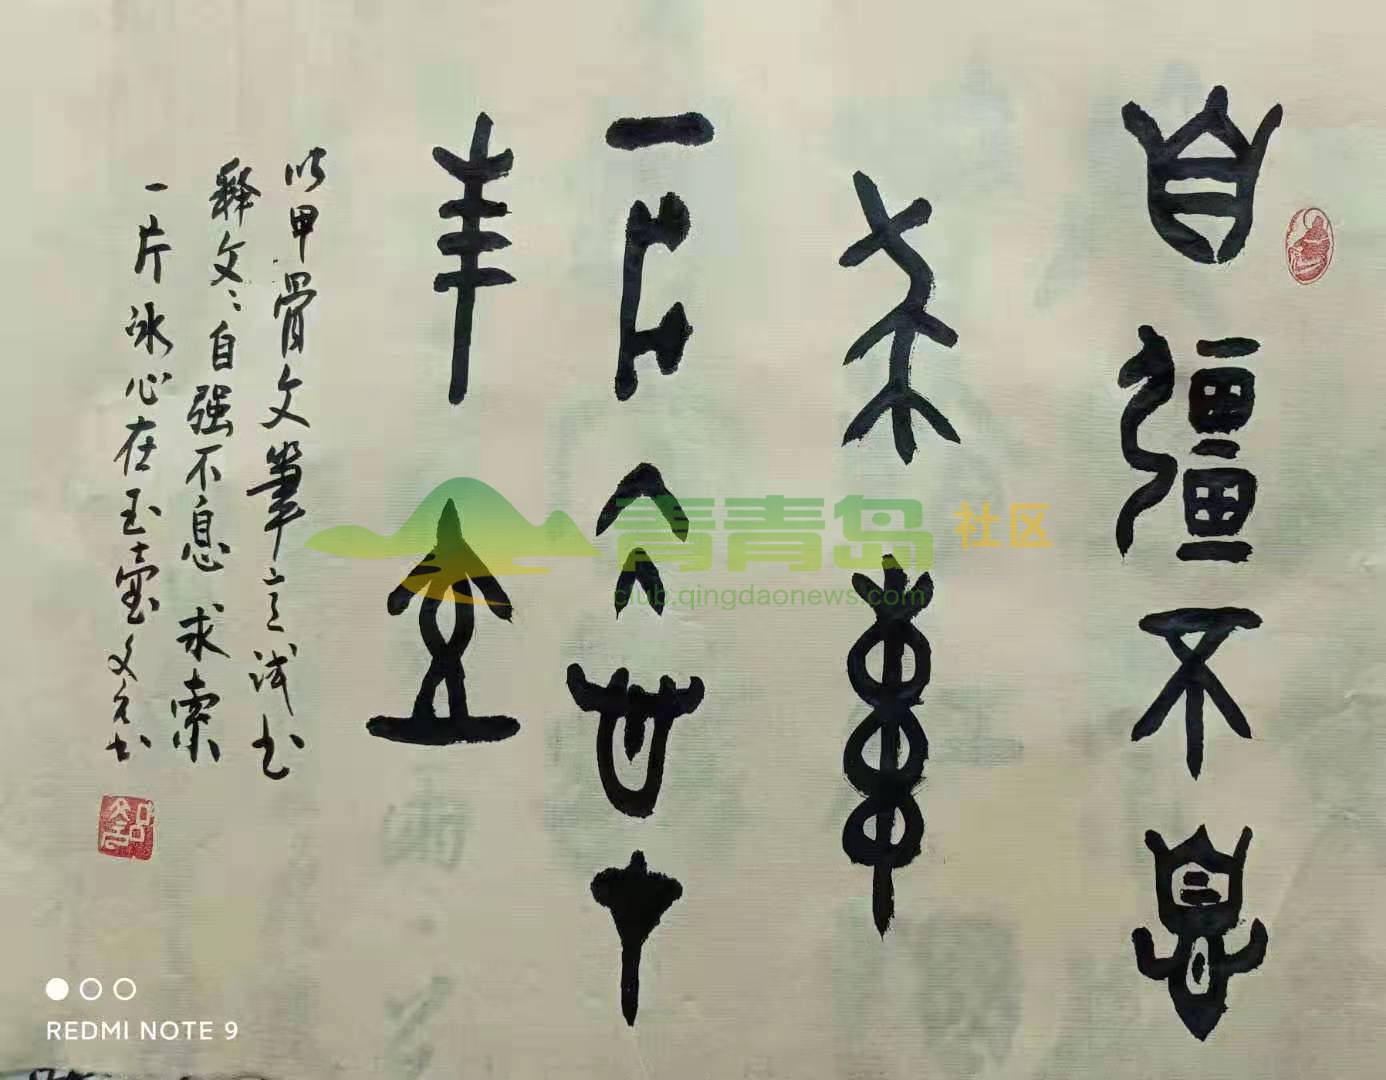 自彊不息
求索
一片冰心才
玉壶
以甲骨文笔意试书
释文：自强不息 求索
一片冰心在玉壶 文元书
青青岛社区
club.qingdaonews.com
REDMI NOTE 9